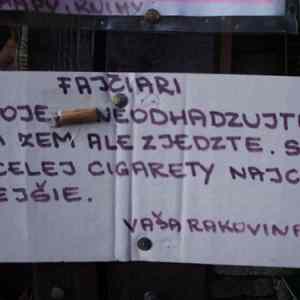 FAJČIARI
NEODHADZUJT
ZEM ALE ZJEDZTE. S
CELEJ CIGARETY NAJC
EJŠIE.
VAŠA RAKOVINA